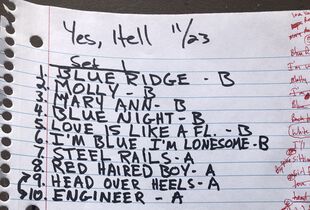 Yes, Hell 11/23
Set 1
1. BLUE RIDGE - B
2. MOLLY - B
3. MARY ANN - B
4. BLUE NIGHT - B
5. LOVE IS LIKE A FL. - B
6. I'M BLUE I'M LONESOME - B
7. STEEL RAILS - A
8. RED HAIRED BOY - A
9. HEAD OVER HEELS - A
10. ENGINEER - A